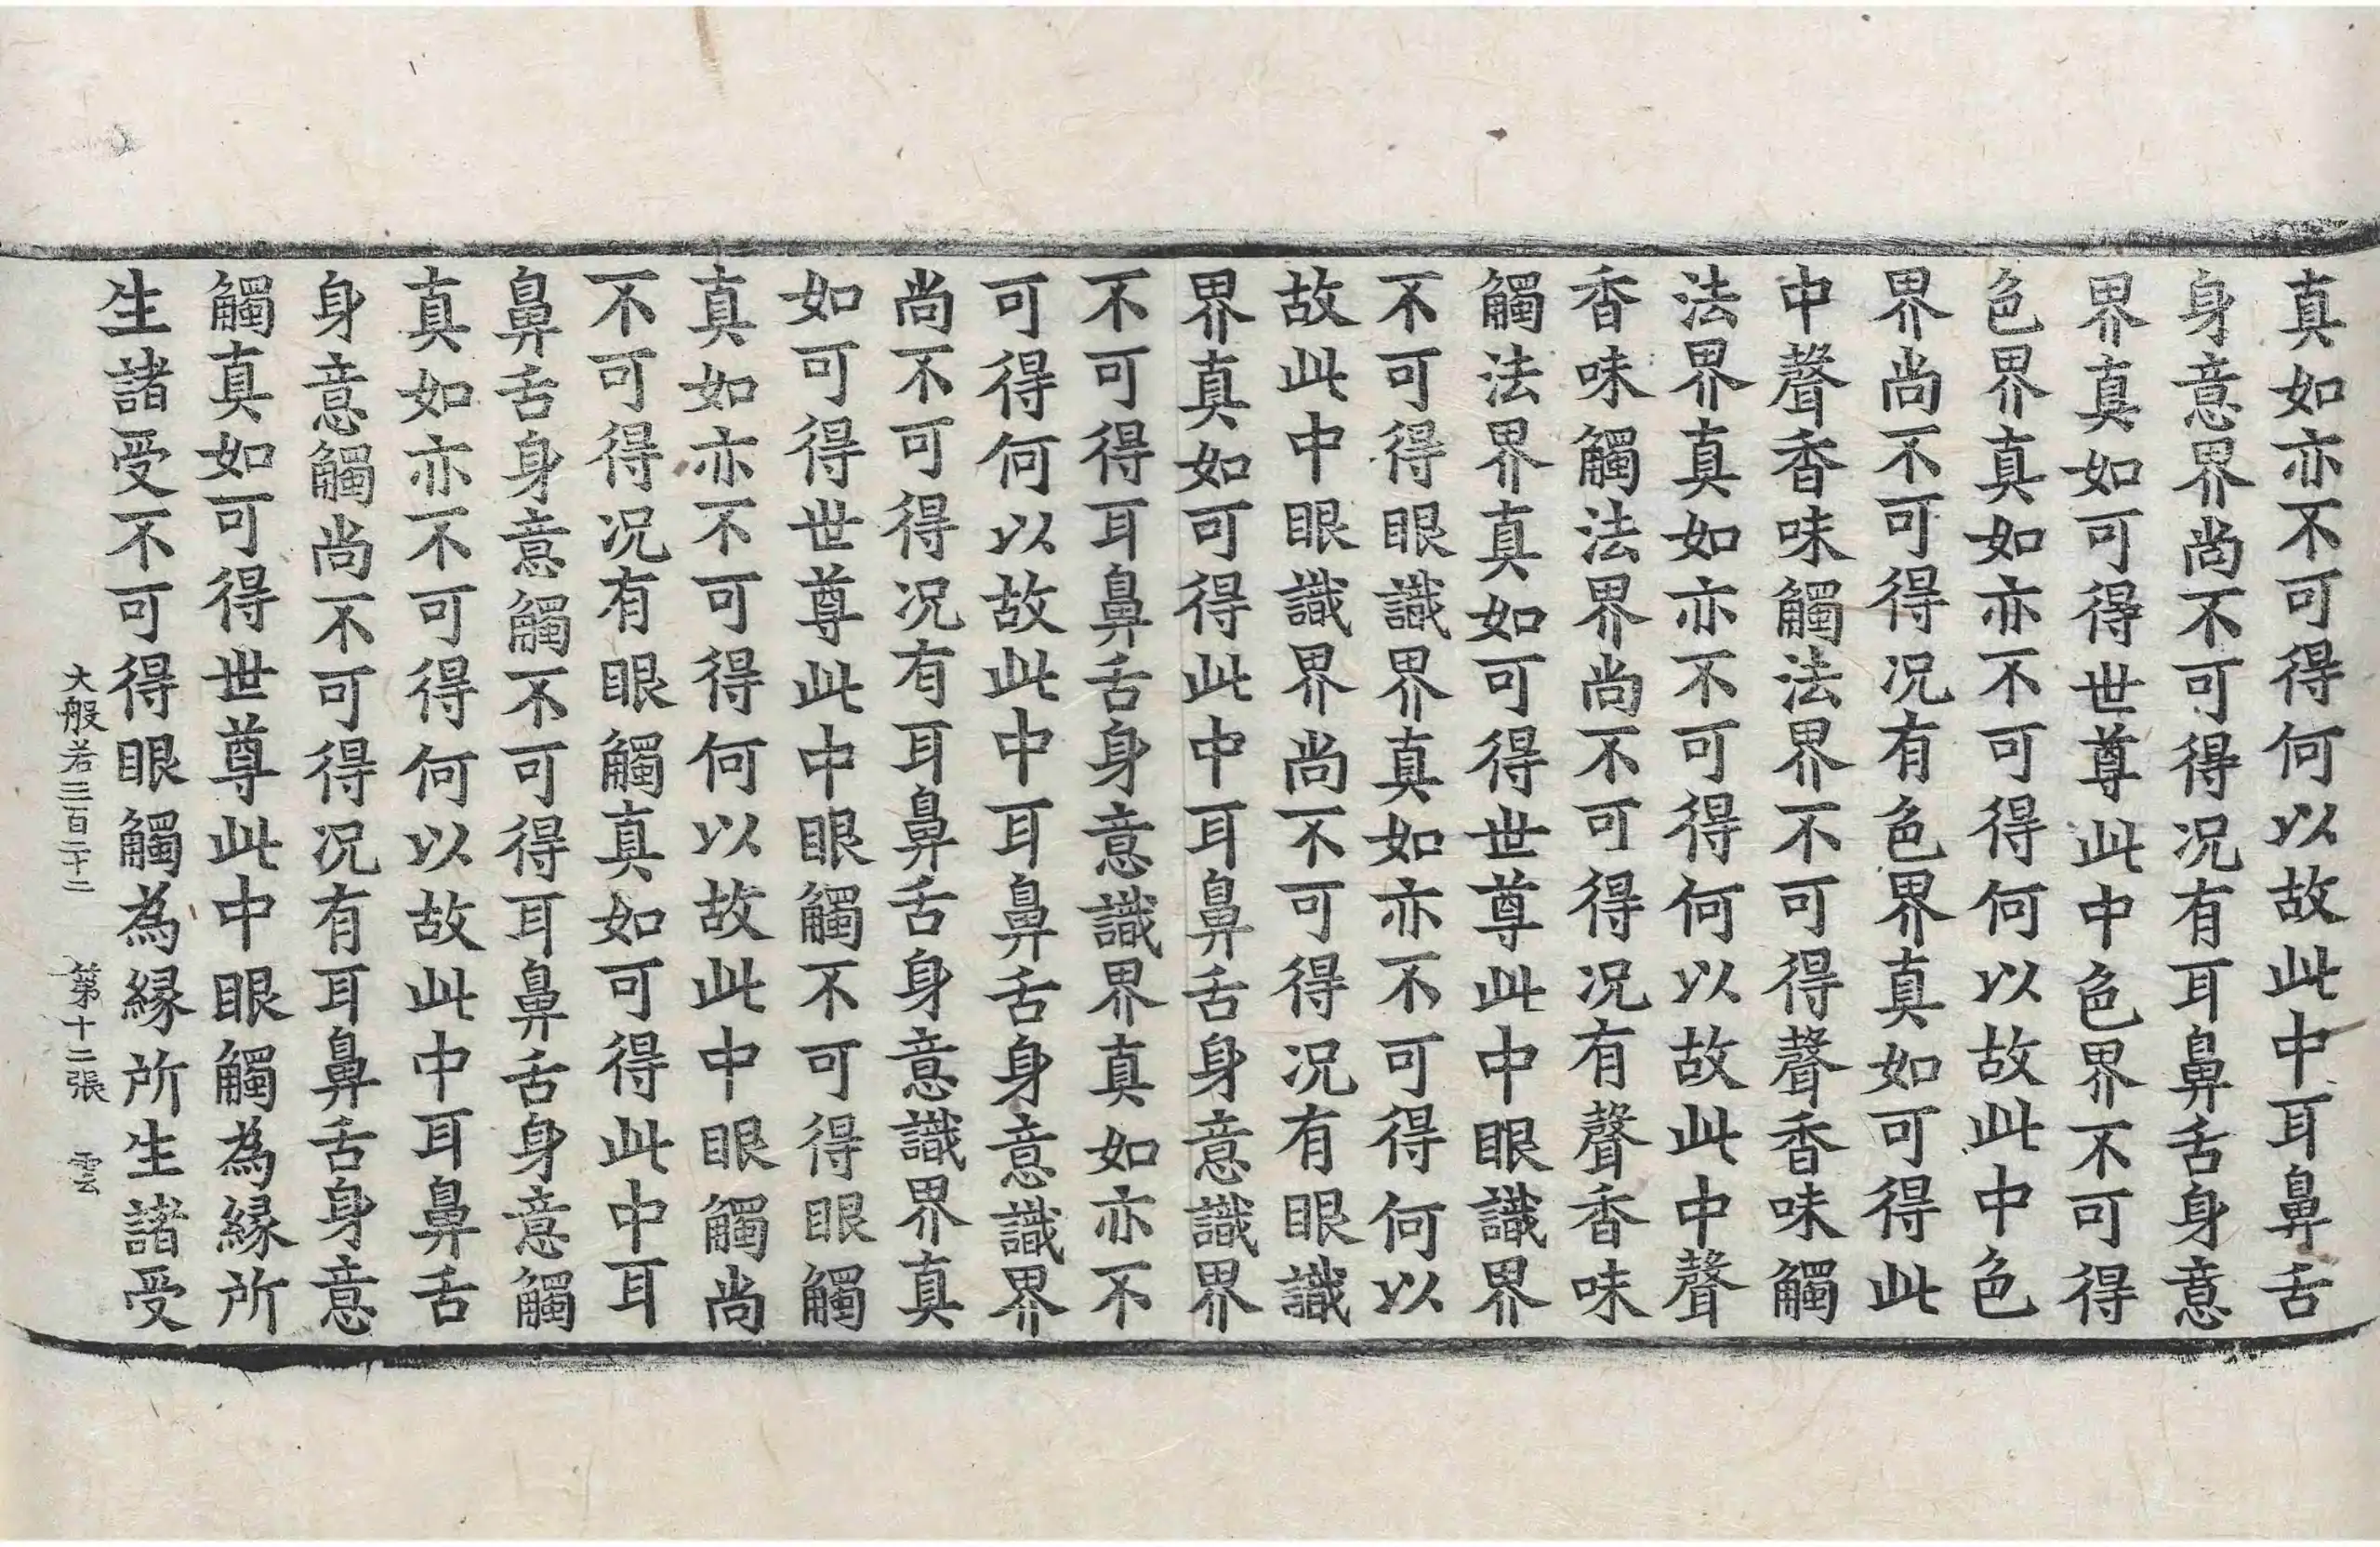 真如亦不可得何以故此中耳鼻舌
身意界尚不可得況有耳鼻舌身意
界真如可得世尊此中色界不可得
色界真如亦不可得何以故此中色
界尚不可得況有色界真如可得此
中聲香味觸法界不可得聲香味觸
法界真如亦不可得何以故此中聲
香味觸法界尚不可得況有聲香味
觸法界真如可得世尊此中眼識界
不可得眼識界真如亦不可得何以
故此中眼識界尚不可得況有眼識
界真如可得此中耳鼻舌身意識界
不可得耳鼻舌身意識界真如亦不
可得何以故此中耳鼻舌身意識界
尚不可得況有耳鼻舌身意識界真
如可得世尊此中眼觸不可得眼觸
真如亦不可得何以故此中眼觸尚
不可得況有眼觸真如可得此中耳
鼻舌身意觸不可得耳鼻舌身意觸
真如亦不可得何以故此中耳鼻舌
身意觸尚不可得況有耳鼻舌身意
觸真如可得世尊此中眼觸為緣所
生諸受不可得眼觸為緣所生諸受
大般若三百二十二　第十二張　雲